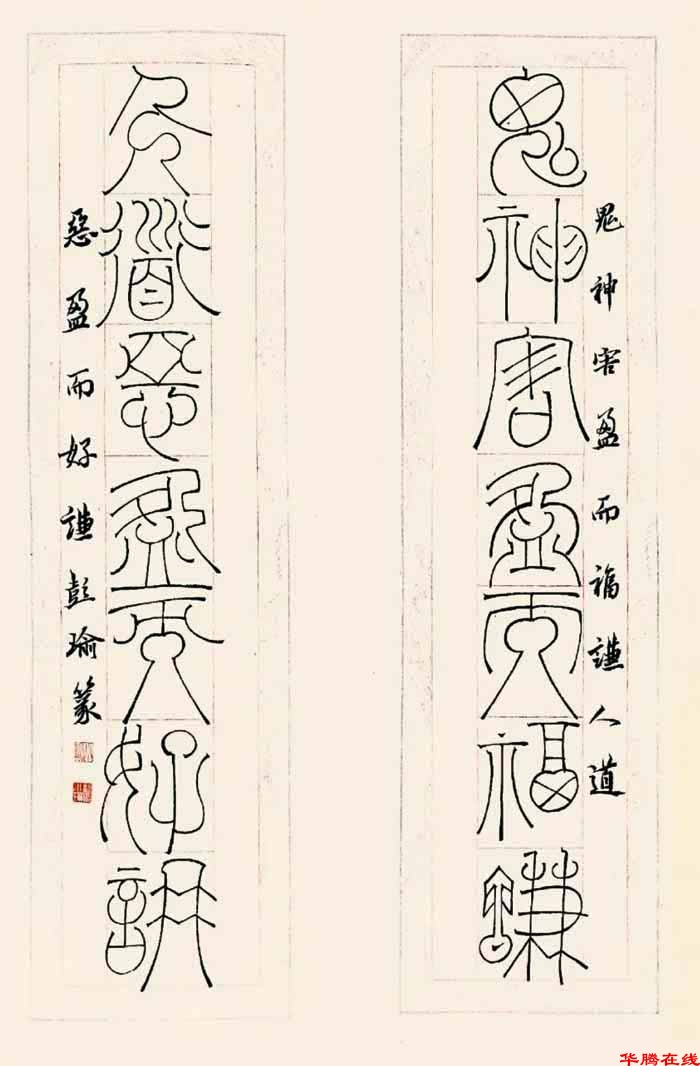 鬼神害盈而福謙人道
鬼神害盈而福謙
人道惡盈而好謙
惡盈而好謙彭瑜篆
华腾在线